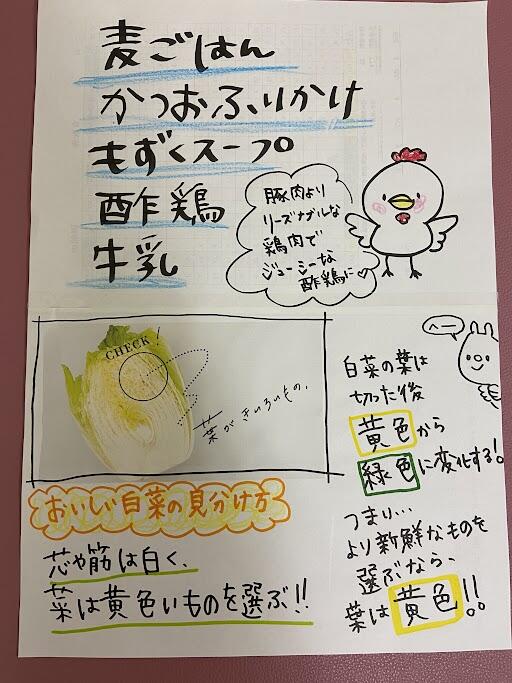 麦ごはん
かつおふりかけ
もずくスープ
酢鶏
牛乳
豚肉より
リーズナブルな
鶏肉で
ジューシーな
酢鶏に♡
CHECK!
葉がきいろいもの。
おいしい白菜の見分け方
芯や筋は白く、
葉は黄色いものを選ぶ!!
へー
白菜の葉は
切った後
黄色から
緑色に変化する!
つまり...
より新鮮なものを
選ぶなら、
葉は黄色!!